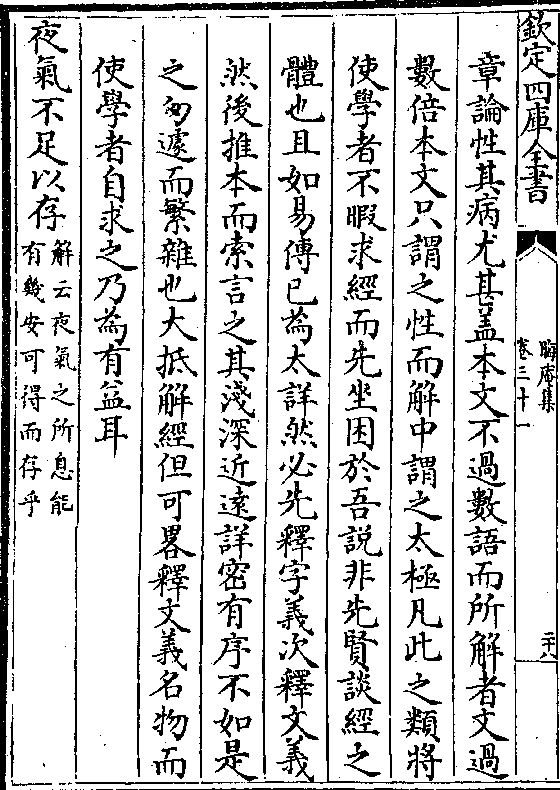 欽定四庫全書
晦庵集
卷三十一
二十八
章論性其病尤甚盖本文不過數語而所解者文過
數倍本文只謂之性而解中謂之太極凡此之類將
使學者不暇求經而先坐困於吾說非先賢談經之
體也且如易傳已為太詳然必先釋字義次釋文義
然後推本而索言之其淺深近遠詳密有序不如是
之匆遽而繁雜也大抵解經但可畧釋文義名物而
使學者自求之乃為有益耳
夜氣不足以存
解云夜氣之所息能
有幾安可得而存乎